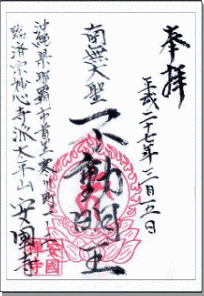 奉拝
平成二十七年三月五日
南無大聖
不動明王
沖縄県那覇市首里寒川町
臨済宗妙心寺派太平山 安國寺
安國
禅寺